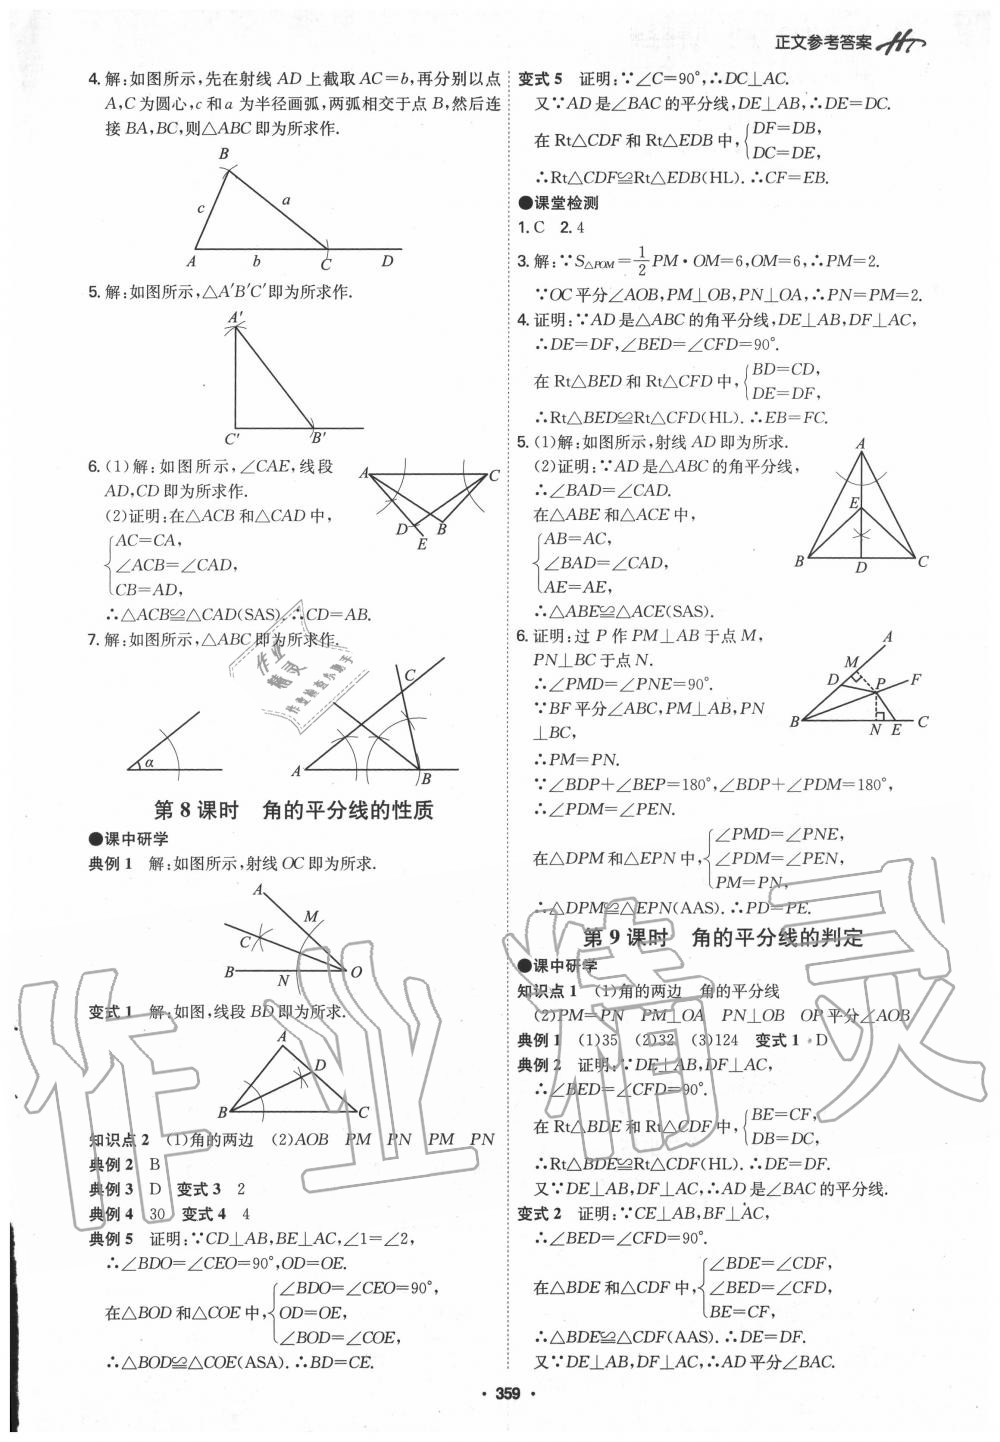 正文参考答案
4. 解:如图所示,先在射线 AD 上截取 AC=b,再分别以点
A,C 为圆心,c 和 a 为半径画弧,两弧相交于点 B,然后连
接 BA,BC,则△ABC 即为所求作.
B
c
a
A
b
C
D
5. 解:如图所示,△A′B′C′即为所求作.
A′
C′
B′
6. (1)解:如图所示,∠CAE,线段
AD,CD 即为所求作.
(2)证明:在△ACB 和△CAD 中,
AC=CA,
∠ACB=∠CAD,
CB=AD,
∴△ACB≌△CAD(SAS).∴CD=AB.
A
C
D
B
E
7. 解:如图所示,△ABC 即为所求作.
α
C
A
B
第 8 课时　角的平分线的性质
●课中研学
典例 1　解:如图所示,射线 OC 即为所求.
A
M
C
B
N
O
变式 1　解:如图,线段 BD 即为所求.
A
D
B
C
知识点 2　(1)角的两边　(2)AOB　PM　PN　PM　PN
典例 2　B
典例 3　D　变式 3　2
典例 4　30　变式 4　4
典例 5　证明:∵CD⊥AB,BE⊥AC,∠1=∠2,
∴∠BDO=∠CEO=90°,OD=OE.
∠BDO=∠CEO=90°,
在△BOD 和△COE 中, OD=OE,
∠BOD=∠COE,
∴△BOD≌△COE(ASA).∴BD=CE.
变式 5　证明:∵∠C=90°,∴DC⊥AC.
又∵AD 是∠BAC 的平分线,DE⊥AB,∴DE=DC.
在 Rt△CDF 和 Rt△EDB 中,
DF=DB,
DC=DE,
∴Rt△CDF≌Rt△EDB(HL).∴CF=EB.
●课堂检测
1. C　2. 4
3. 解:∵S△POM=1/2 PM·OM=6,OM=6,∴PM=2.
∵OC 平分∠AOB,PM⊥OB,PN⊥OA,∴PN=PM=2.
4. 证明:∵AD 是△ABC 的角平分线,DE⊥AB,DF⊥AC,
∴DE=DF,∠BED=∠CFD=90°.
在 Rt△BED 和 Rt△CFD 中,
BD=CD,
DE=DF,
∴Rt△BED≌Rt△CFD(HL).∴EB=FC.
5. (1)解:如图所示,射线 AD 即为所求.
(2)证明:∵AD 是△ABC 的角平分线,
∴∠BAD=∠CAD.
在△ABE 和△ACE 中,
AB=AC,
∠BAD=∠CAD,
AE=AE,
∴△ABE≌△ACE(SAS).
A
E
B
D
C
6. 证明:过 P 作 PM⊥AB 于点 M,
PN⊥BC 于点 N.
∴∠PMD=∠PNE=90°.
∵BF 平分∠ABC,PM⊥AB,PN
⊥BC,
∴PM=PN.
∵∠BDP+∠BEP=180°,∠BDP+∠PDM=180°,
∴∠PDM=∠PEN.
∠PMD=∠PNE,
在△DPM 和△EPN 中, ∠PDM=∠PEN,
PM=PN,
∴△DPM≌△EPN(AAS).∴PD=PE.
A
M
D
P
F
B
N
E
C
第 9 课时　角的平分线的判定
●课中研学
知识点 1　(1)角的两边　角的平分线
(2)PM=PN　PM⊥OA　PN⊥OB　OP 平分∠AOB
典例 1　(1)35　(2)32　(3)124　变式 1　D
典例 2　证明:∵DE⊥AB,DF⊥AC,
∴∠BED=∠CFD=90°.
在 Rt△BDE 和 Rt△CDF 中,
BE=CF,
DB=DC,
∴Rt△BDE≌Rt△CDF(HL).∴DE=DF.
又∵DE⊥AB,DF⊥AC,∴AD 是∠BAC 的平分线.
变式 2　证明:∵CE⊥AB,BF⊥AC,
∴∠BED=∠CFD=90°.
∠BDE=∠CDF,
在△BDE 和△CDF 中, ∠BED=∠CFD,
BE=CF,
∴△BDE≌△CDF(AAS).∴DE=DF.
又∵DE⊥AB,DF⊥AC,∴AD 平分∠BAC.
· 359 ·
作业精灵
作业
精灵
作业检查小助手